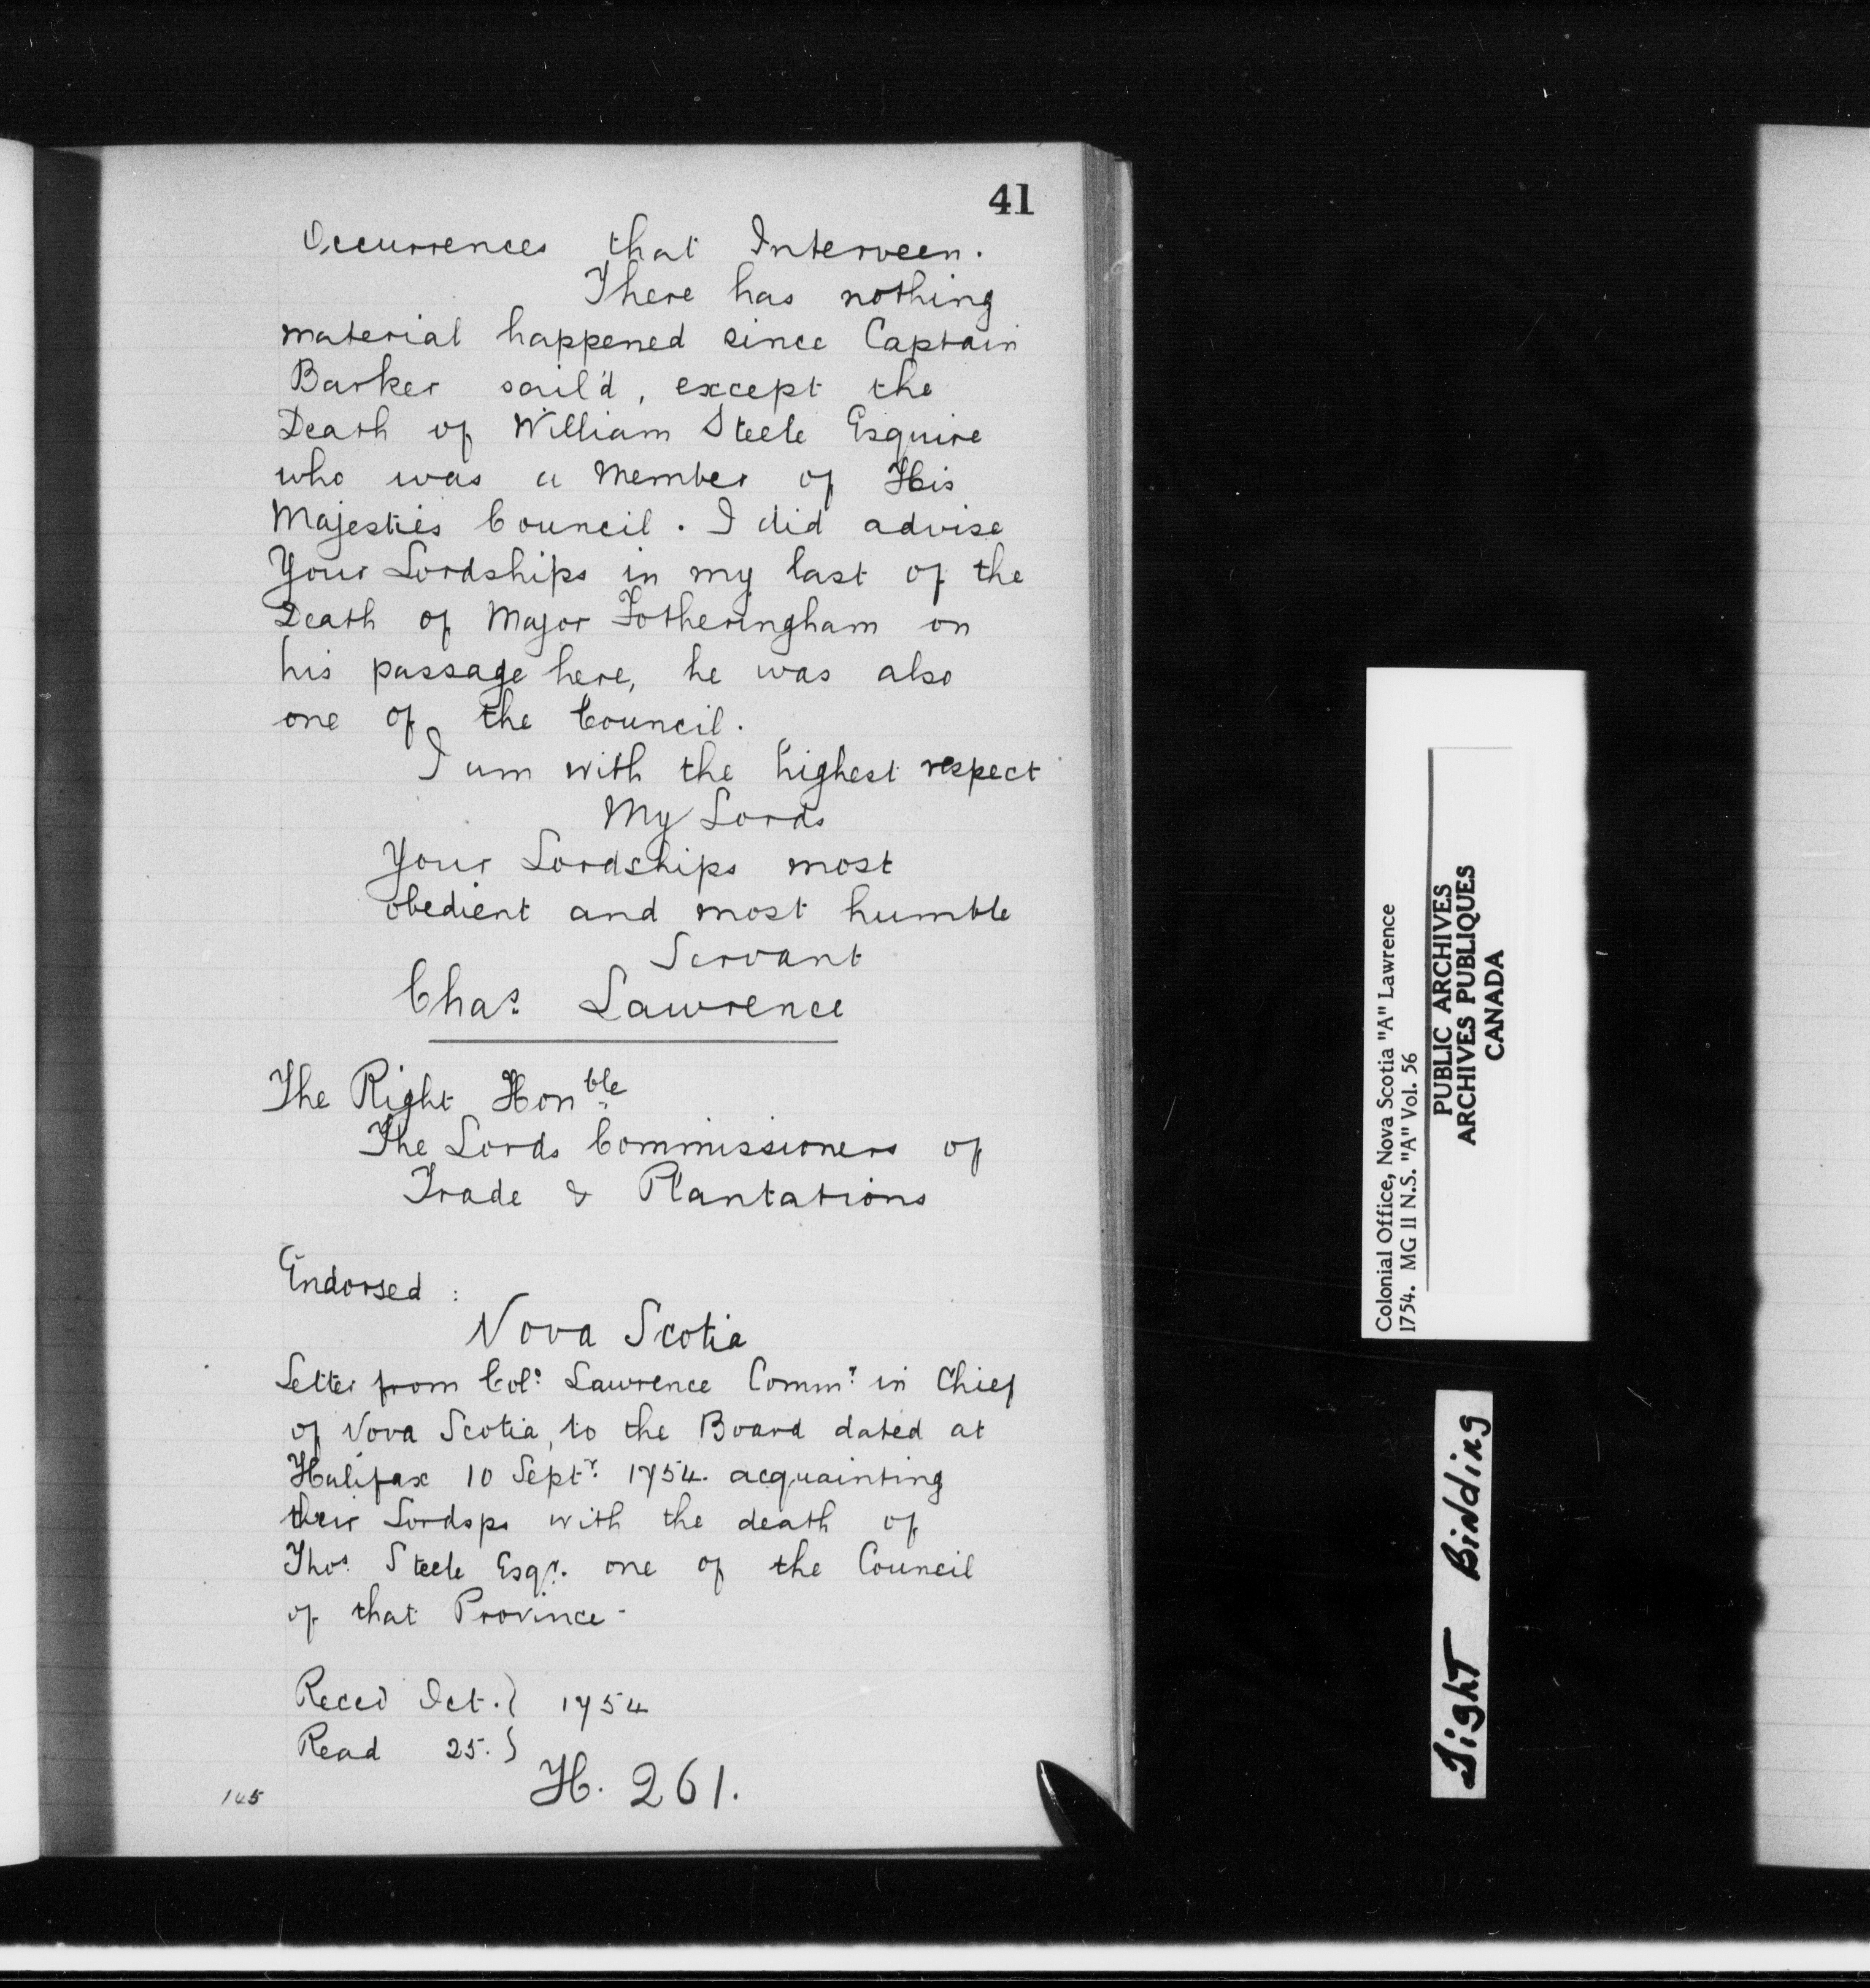 41
Occurrences that Interveen.
There has nothing
material happened since Captain
Barker sail'd, except the
Death of William Steele Esquire
who was a Member of His
Majesties Council. I did advise
Your Lordships in my last of the
Death of Major Fotheringham on
his passage here, he was also
one of the Council.
I am with the highest respect
My Lords
Your Lordships most
obedient and most humble
Servant
Chas. Lawrence
The Right Honble
The Lords Commissioners of
Trade & Plantations
Endorsed :
Nova Scotia
Letter from Col: Lawrence Commr in Chief
of Nova Scotia, to the Board dated at
Halifax 10 Septr. 1754. acquainting
their Lordsps with the death of
Thos. Steele Esqr. one of the Council
of that Province -
Reced Oct. } 1754
Read 25. }
H. 261.
145
Colonial Office, Nova Scotia "A" Lawrence
1754. MG 11 N.S. "A" Vol. 56
PUBLIC ARCHIVES
ARCHIVES PUBLIQUES
CANADA
Tight Binding